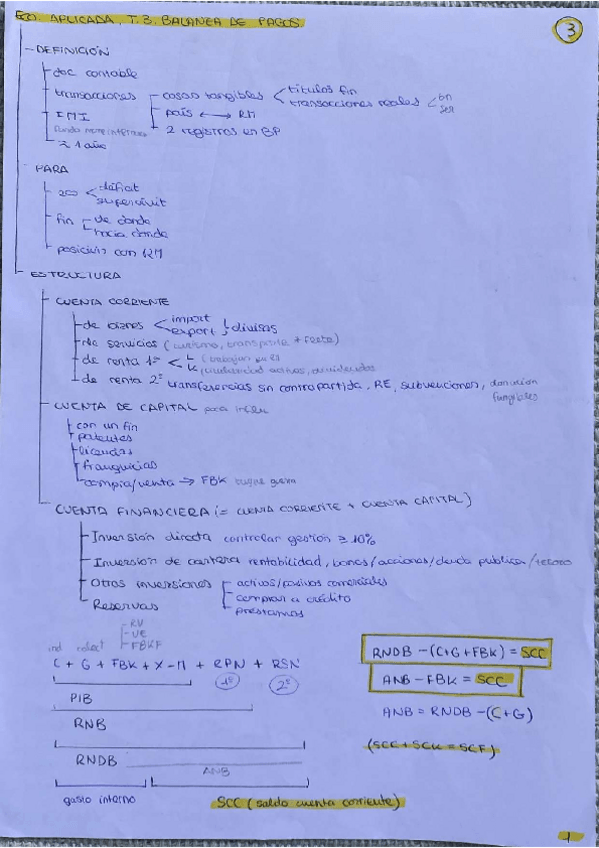 ECO. APLICADA, T.3. BALANZA DE PAGOS.
3
- DEFINICIÓN
doc contable
transacciones
cosas tangibles
títulos fin
transacciones reales
bn
ser
país ↔ RM
2 registros en BP
≈ 1 año
PARA
déficit
fin
de donde
hacia donde
posición con RM
ESTRUCTURA
CUENTA CORRIENTE
de bienes
import
export
divisas
de servicios (turismo, transporte + resto)
de renta 1ª
L (trabajan
K
activos, dividendos
de renta 2ª transferencias sin contrapartida, RE, subvenciones, donación
fungibles
CUENTA DE CAPITAL para infra
con un fin
patentes
licencias
franquicias
compra/venta → FBK buque guerra
CUENTA FINANCIERA (= CUENTA CORRIENTE + CUENTA CAPITAL)
Inversión directa controlar gestión ≥ 10%
Inversión de cartera rentabilidad, bonos/acciones/deuda pública/tesoro
Otras inversiones
activos/pasivos comerciales
comprar a crédito
préstamos
Reservas
RV
VE
FBKF
C + G + FBK + X-M + RPN + RSN
1ª
2ª
PIB
RNB
RNDB
ANB
gasto interno
SCC (saldo cuenta corriente)
RNDB - (C+G+FBK) = SCC
ANB - FBK = SCC
ANB = RNDB - (C+G)
(SCC + SCK = SCF)
1